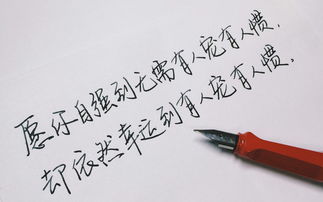 愿你自强到无需有人宠有人惯,
却依然幸运到有人宠有人惯.